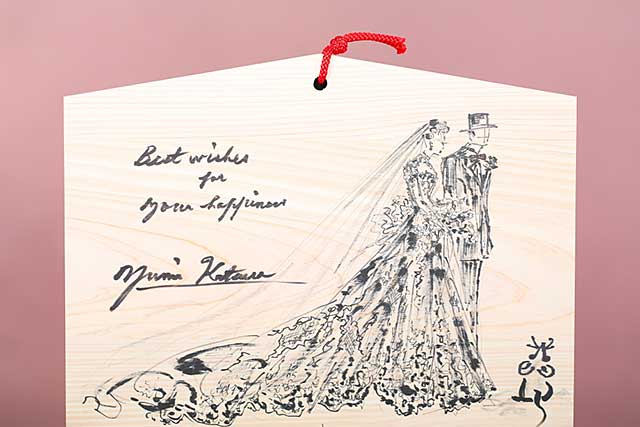 Best wishes
for
your happiness
Yumi Katsura